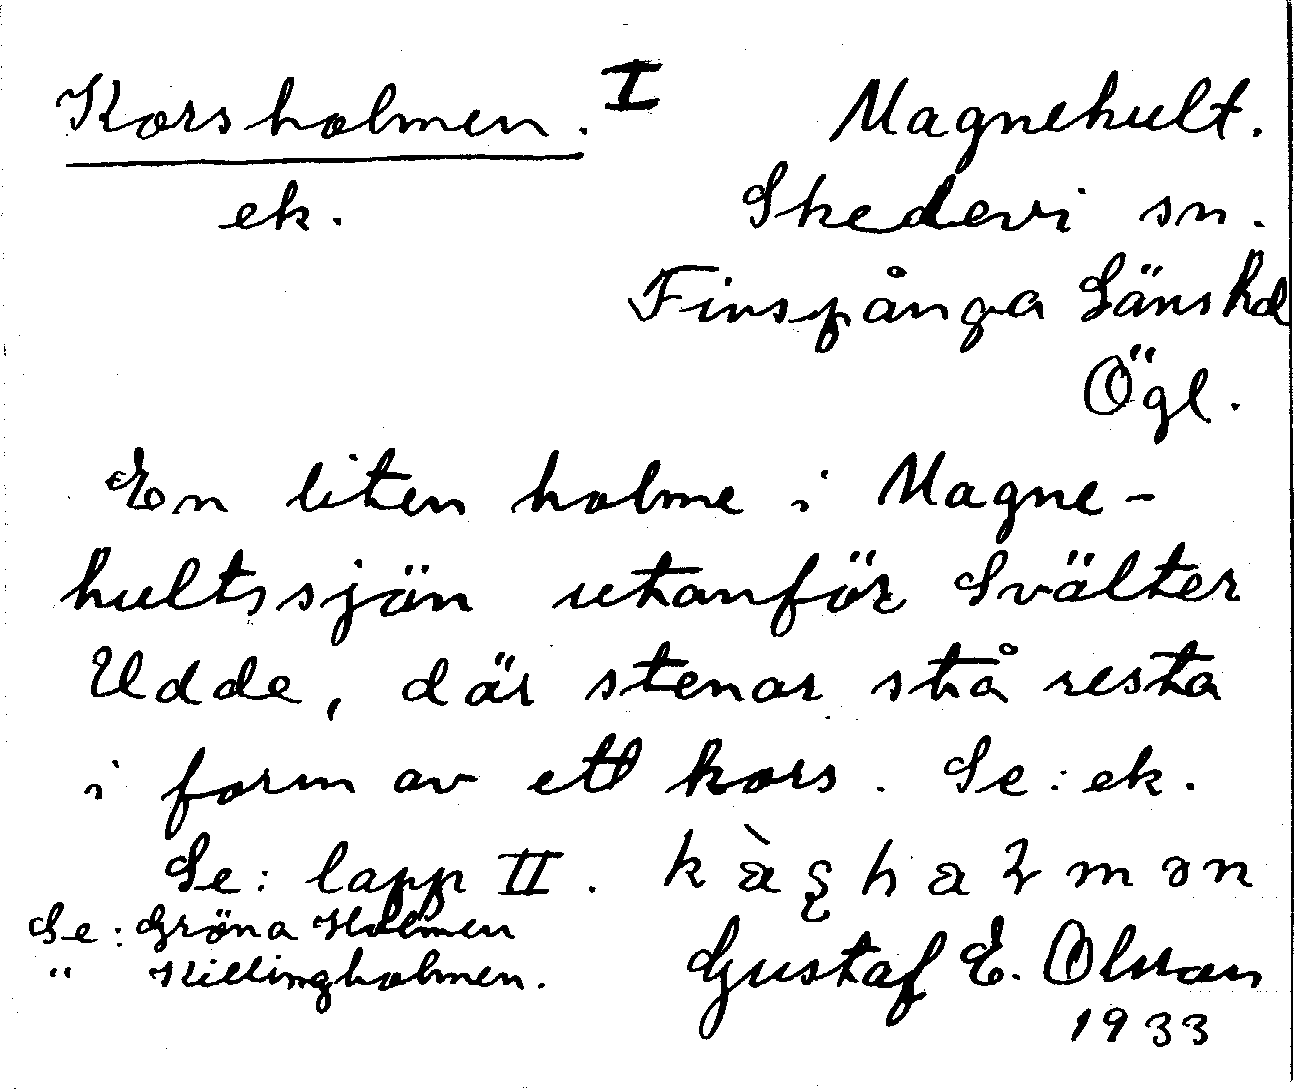 Korsholmen. I
ek.
Magnehult.
Skedevi sn.
Finspånga Länshd
Ögl.
En liten holme i Magne-
hultssjön utanför Svälter
Udde, där stenar stå resta
i form av ett kors. Se: ek.
Se: lapp II.
Se: Gröna Holmen
" Killingholmen.
Gustaf E. Olsson
1933